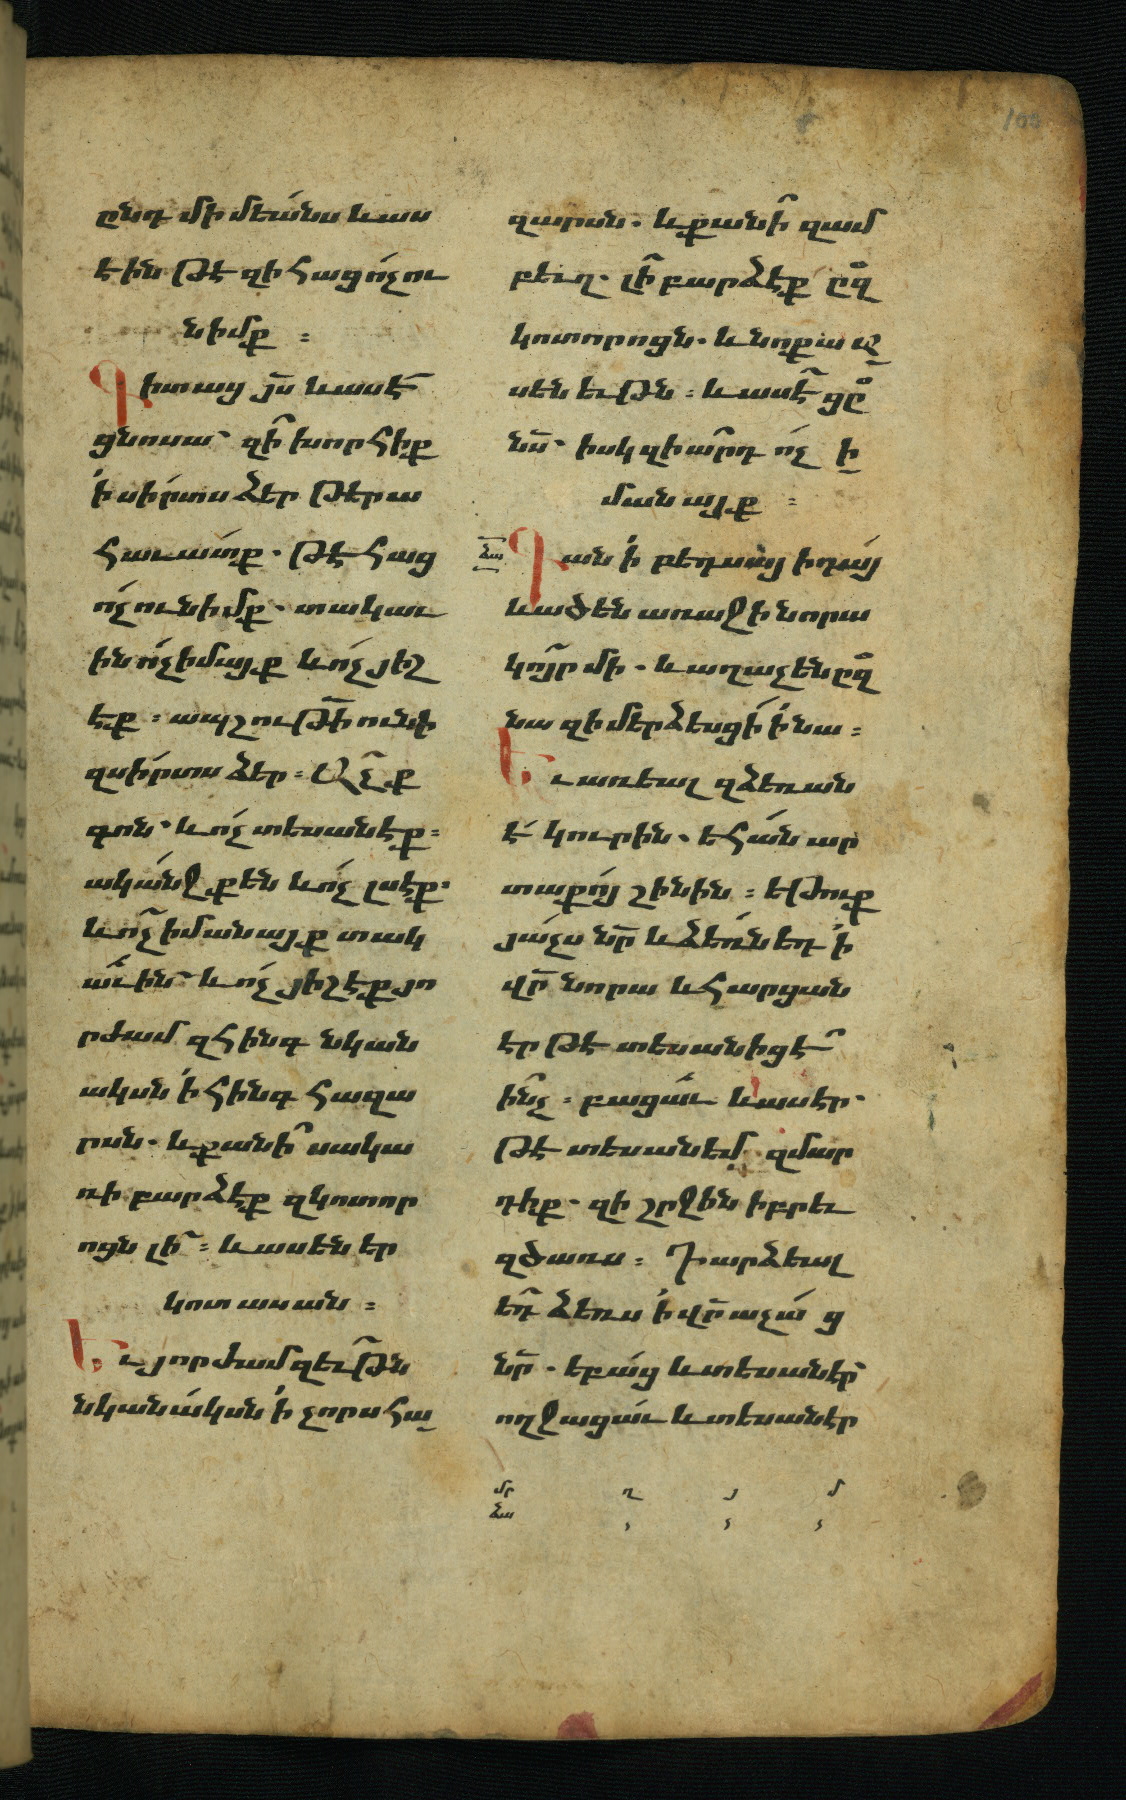 ընդ միմեանս և աս
էին թէ զի հաց ոչ ու
նիմք ։
Գիտաց յս և ասէ
ցնոսա՝ զի խորհիք
ի սիրտս ձեր թերա
հաւատք․ թէ հաց
ոչ ունիմք․ տակաւ
ին ոչ իմայք և ոչ յիշ
էք ։ ապշութի ունի
զսիրտս ձեր ։ Աչք
գոն․ և ոչ տեսանէք ։
ականջ քեն և ոչ լսէք․
և ոչ իմանայք տակ
աւին՝ և ոչ յիշէք յո
րժամ զհինգ նկան
ակսն ի հինգ հազա
րսն․ և քանի սակա
ռի բարձէք զկոտոր
ոցն լի ։ և ասեն եր
կոտասան ։
Եւ յորժամ զեւթն
նկանակսն ի չորս հա
զարսն․ և քանի զամ
բեւղ․ լի բարձէք ըզ
կոտորոցն․ և նոքա ա
սեն եւթն ։ և ասէ ցը
նս՝ իսկ զիարդ ոչ ի
մանայք ։
ձա Գան ի բեդսայիդայ
և ածեն առաջի նորա
կոյր մի․ և աղաչեն ըզ
նա զի մերձեսցի ի նա ։
Եւ առեալ զձեռան
է կուրին․ եհան ար
տաքոյ շինին ։ եթուք
յաչս նր և ձեռն եդ ի
վր նորա և հարցան
էր թէ տեսանիցէ
ինչ ։ բացաւ և ասէր․
թէ տեսանեմ զմար
դիք․ զի շրջին իբրեւ
զծառս ։ Դարձեալ
եդ ձեռս ի վր աչաց
նր․ եբաց և տեսանէր
ողջացաւ և տեսանէր
մր ղ յ մ
ձա